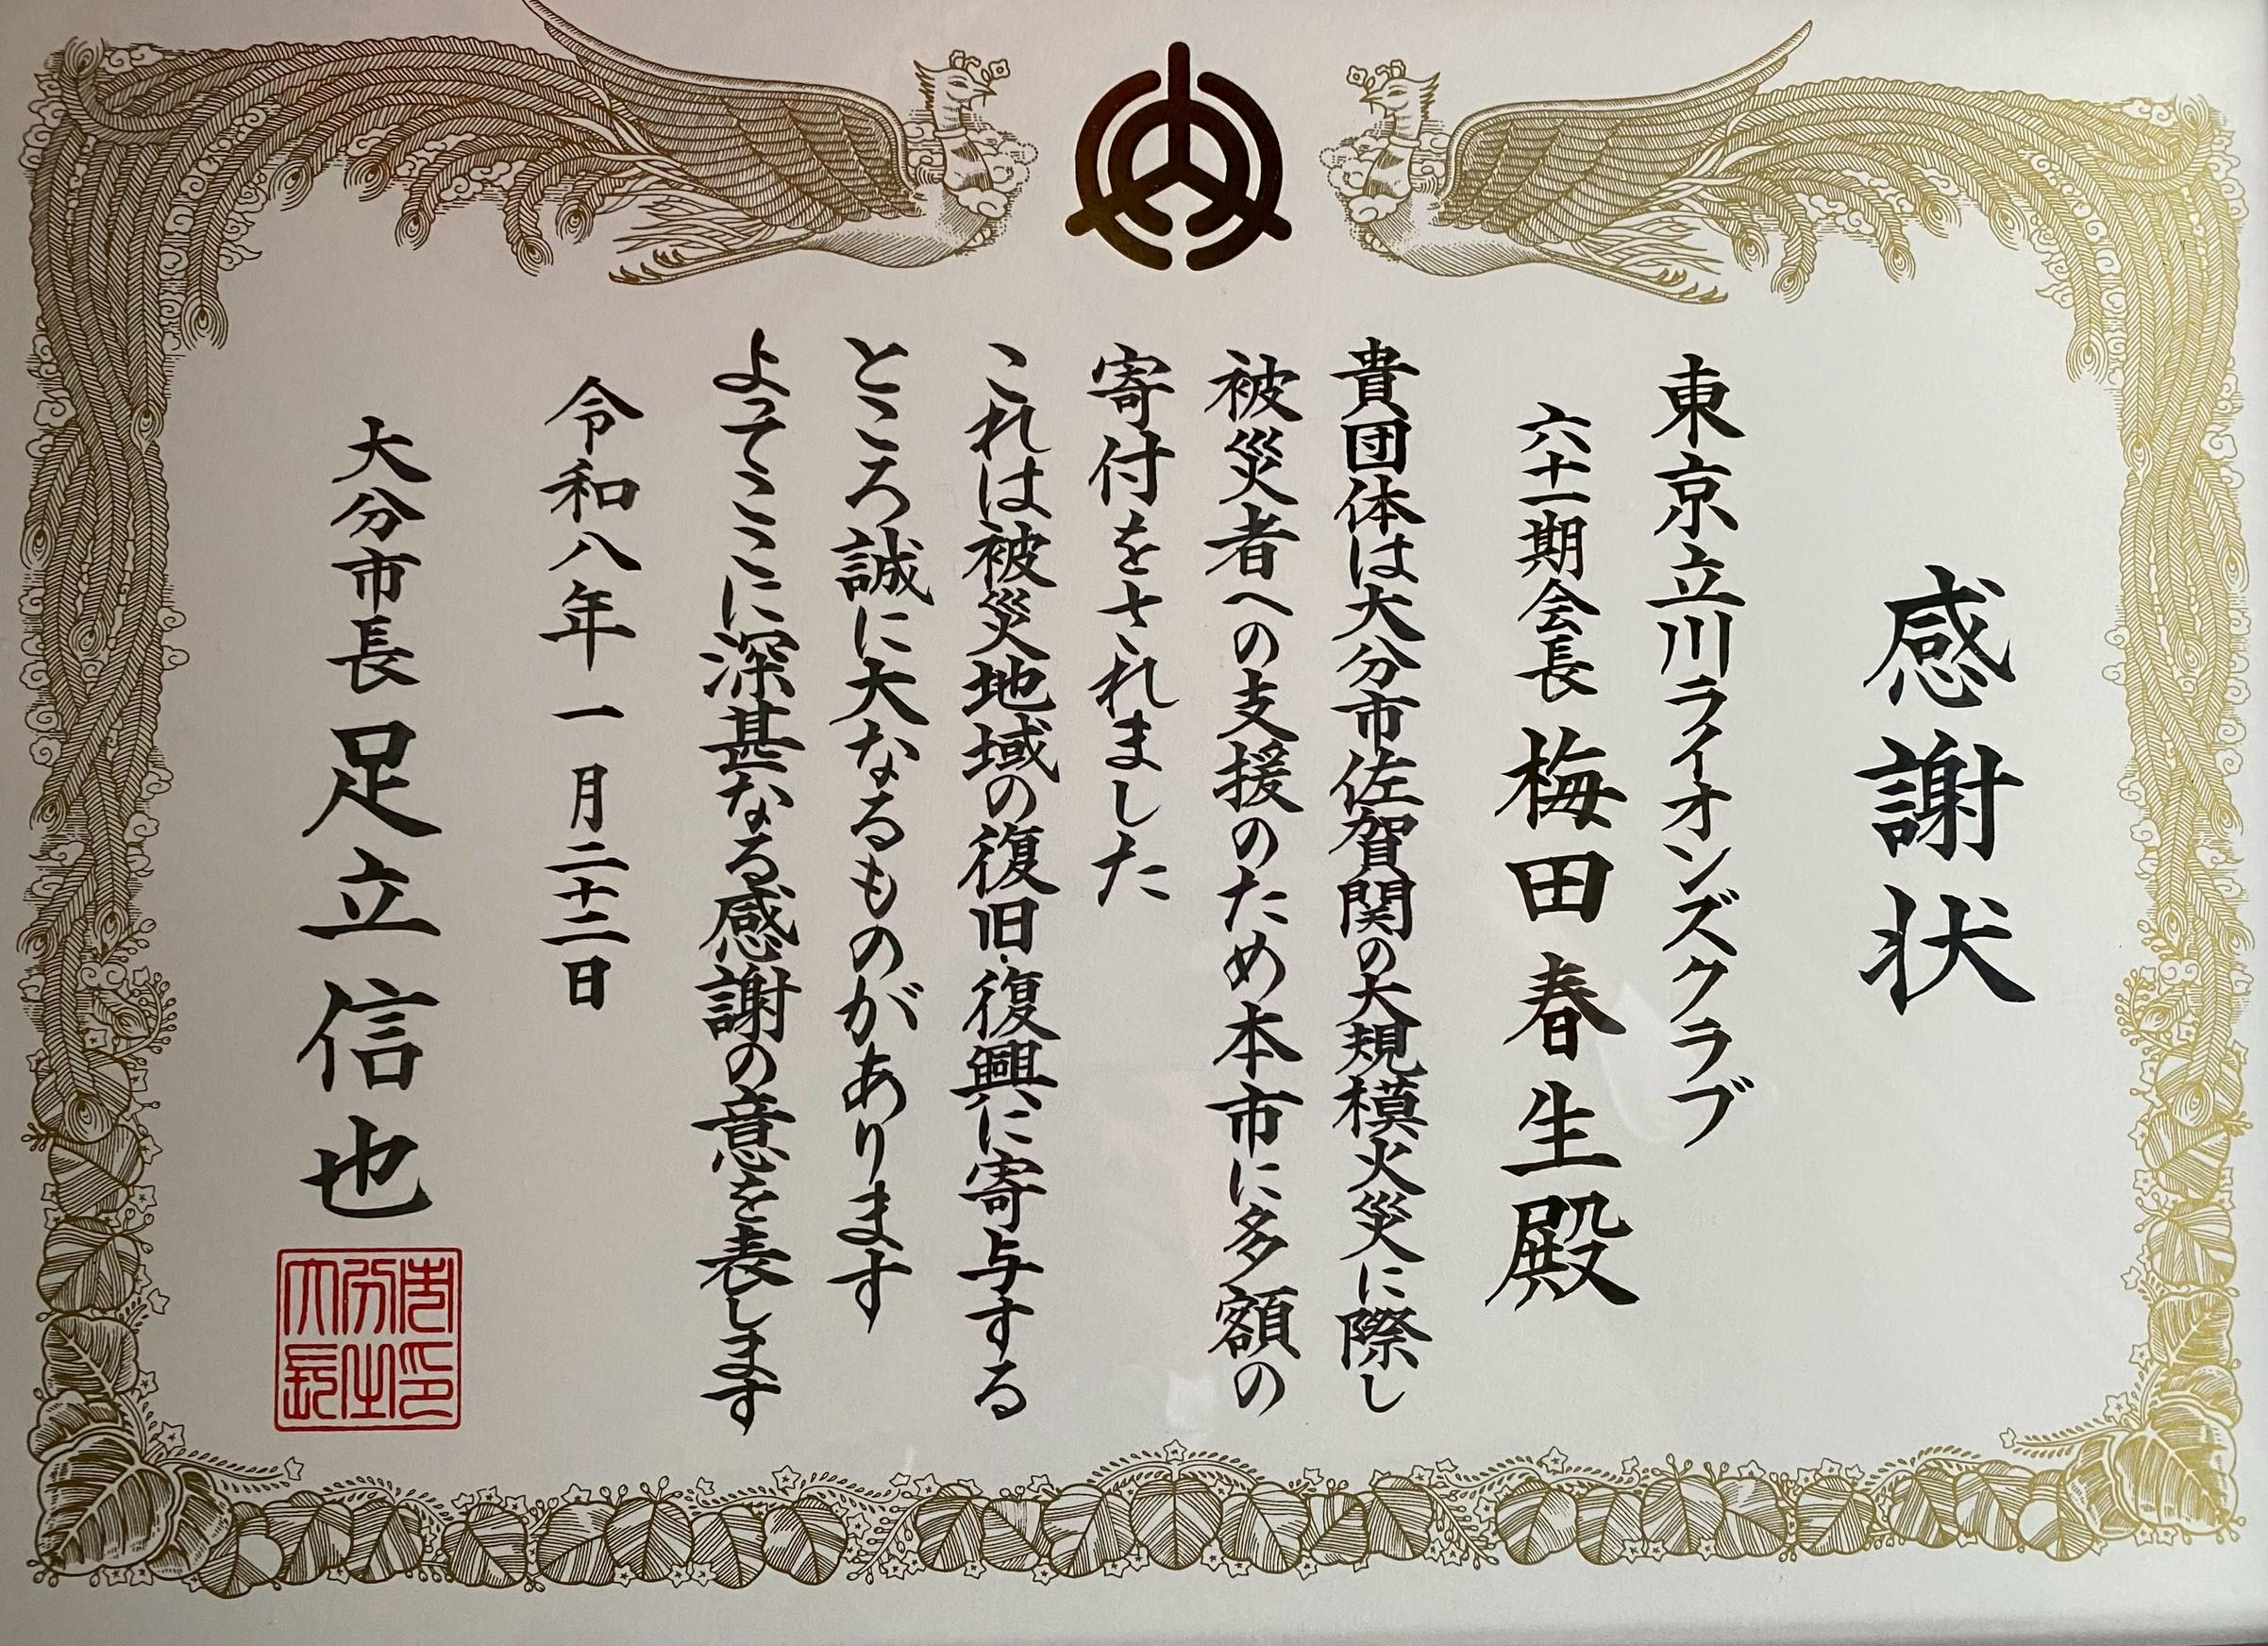 感謝状
東京立川ライオンズクラブ
六十一期会長 梅田春生殿
貴団体は大分市佐賀関の大規模火災に際し
被災者への支援のため本市に多額の
寄付をされました
これは被災地域の復旧・復興に寄与する
ところ誠に大なるものがあります
よってここに深甚なる感謝の意を表します
令和八年一月二十二日
大分市長 足立信也
大分市長之印